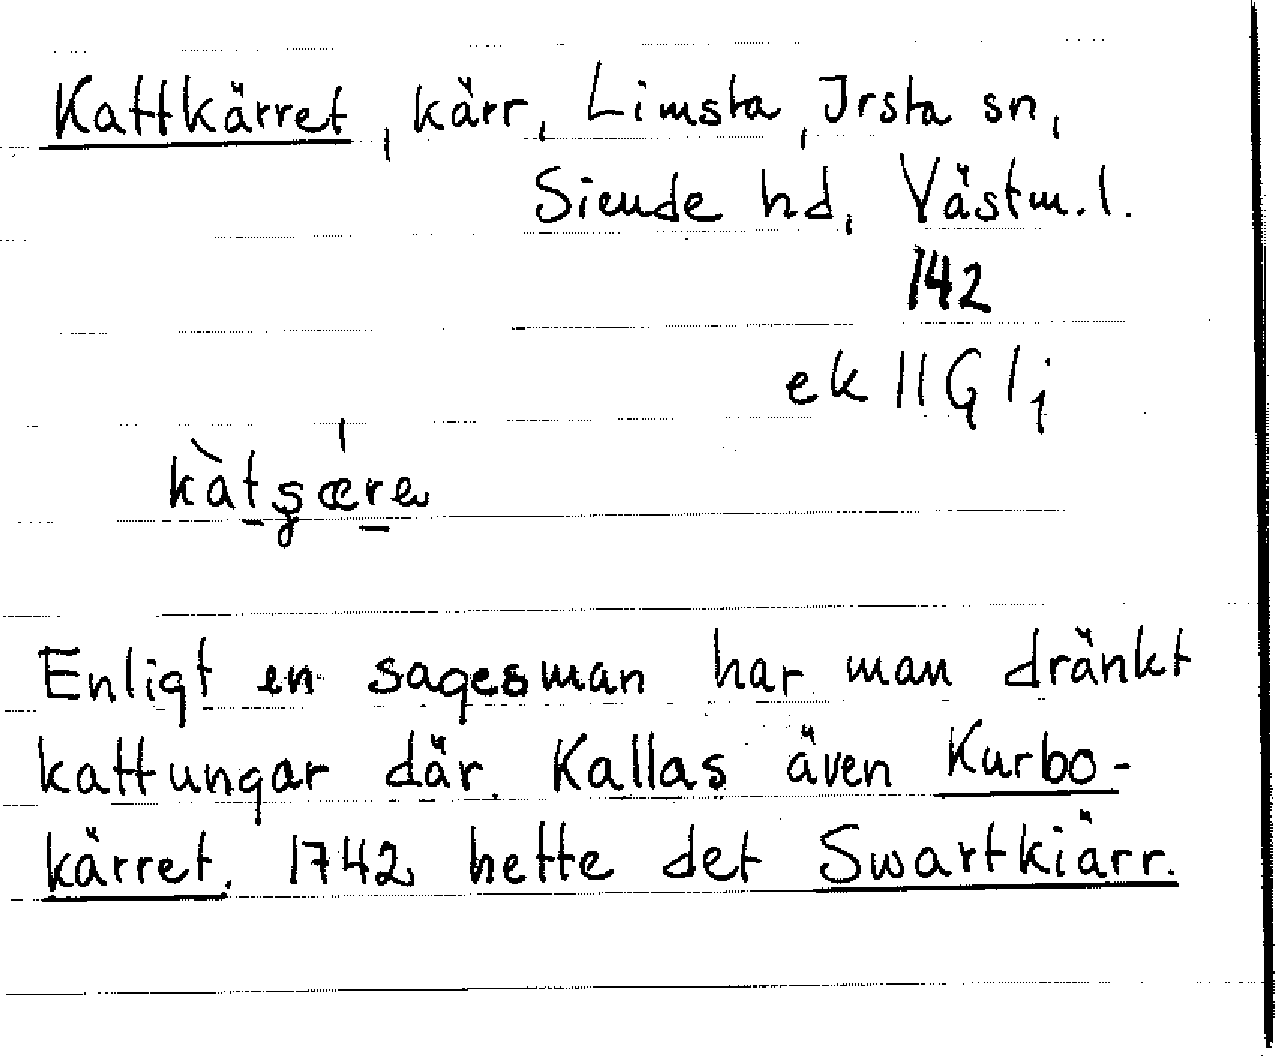 Kattkärret, kärr, Limsta, Irsta sn,
Siende hd, Västm. l.
142
ek 11G 1j
Enligt en sagesman har man dränkt
kattungar där. Kallas även Kurbo-
kärret. 1742 hette det Swartkiärr.